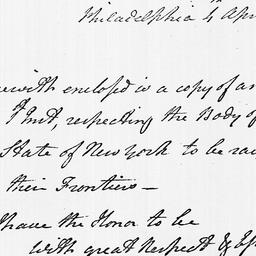 Philadelphia 4 Apr
ewith enclosed is a copy of an
respecting the Body of
State of New York to be rai
their Frontiers —
I have the Honor to be
with great Respect &